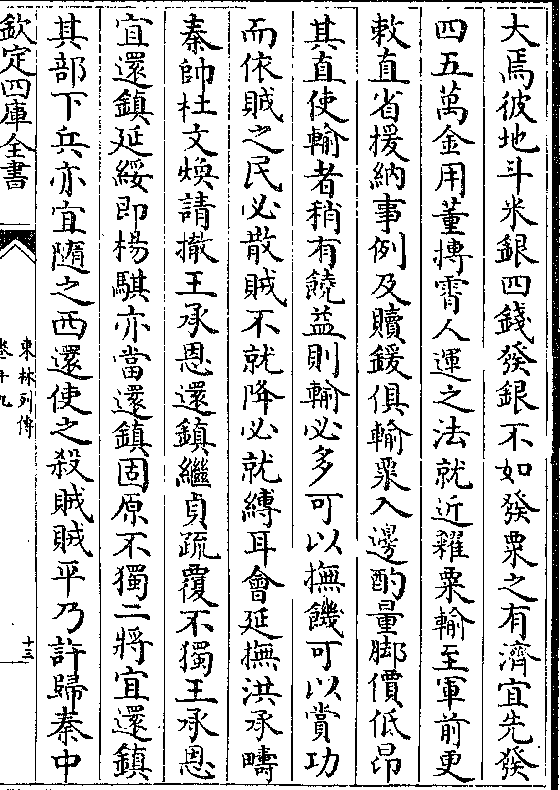 大焉彼地斗米銀四錢發銀不如發粟之有濟宜先發
四五萬金用董摶霄人運之法就近糴粟輸至軍前更
敕直省援納事例及贖鍰俱輸粟入邊酌量脚價低昂
其直使輸者稍有饒益則輸必多可以撫饑可以賞功
而依賊之民必散賊不就降必就縛耳會延撫洪承疇
秦帥杜文煥請撤王承恩還鎮繼貞疏覆不獨王承恩
宜還鎮延綏即楊騏亦當還鎮固原不獨二將宜還鎮
其部下兵亦宜隨之西還使之殺賊賊平乃許歸秦中
欽定四庫全書
東林列傳
卷十九
十三